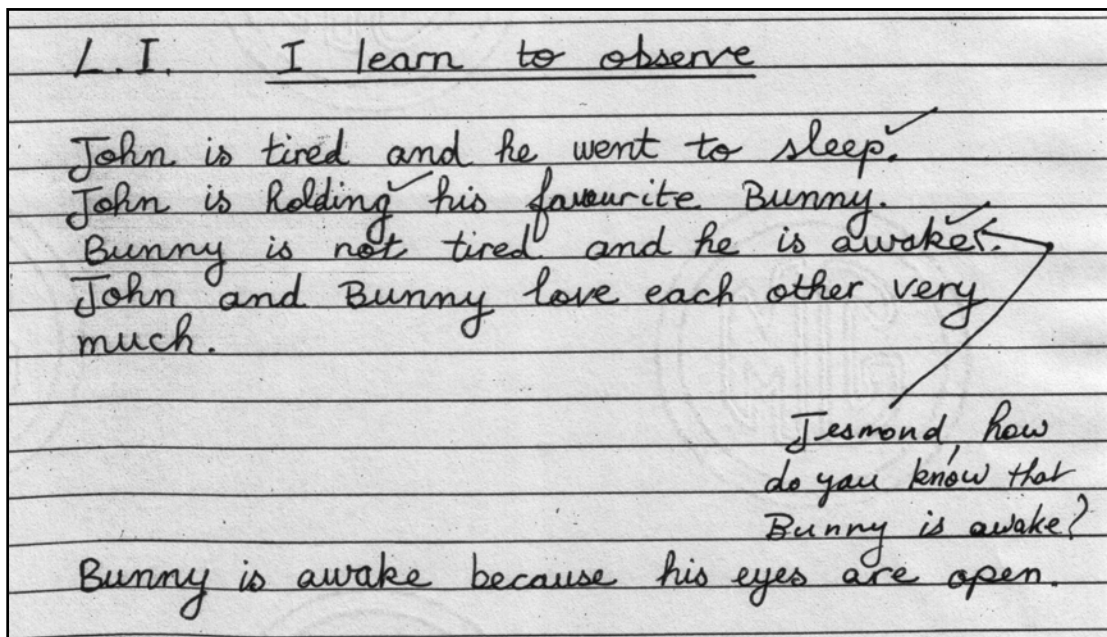 L.I. I learn to observe
John is tired and he went to sleep.
John is holding his favourite Bunny.
Bunny is not tired and he is awake.
John and Bunny love each other very
much.
Jesmond, how
do you know that
Bunny is awake?
Bunny is awake because his eyes are open.